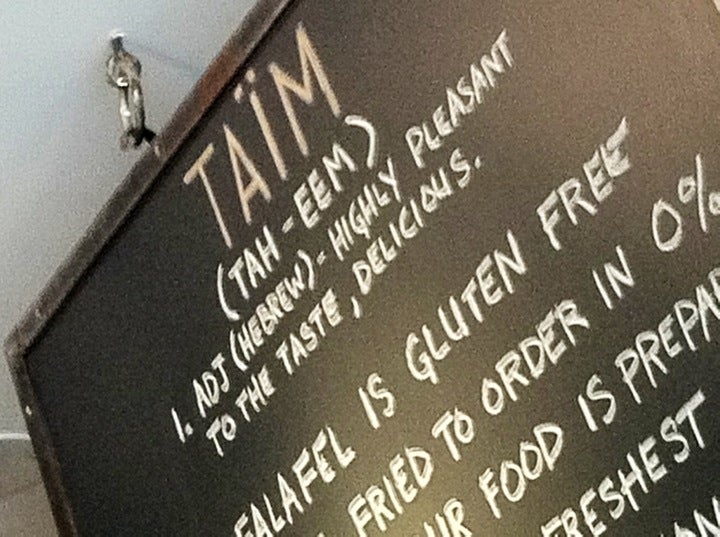 TAÏM
(TAH-EEM)
1. ADJ (HEBREW)- HIGHLY PLEASANT
TO THE TASTE, DELICIOUS.
FALAFEL IS GLUTEN FREE
FRIED TO ORDER IN 0%
FOOD IS